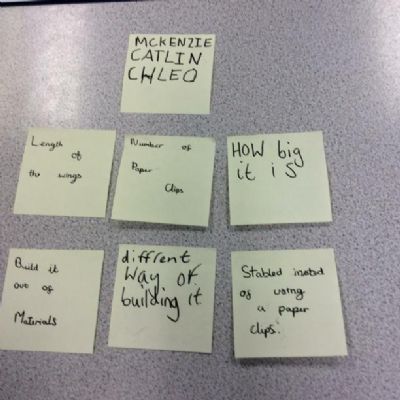 MCKENZIE
CATLIN
CHLEO
Length
of
the wings
Number of
Paper
Clips
HOW big
it is
Build it
out of
Materials
diffrent
way of
building it
Stabled insted
of using
a paper
clips.